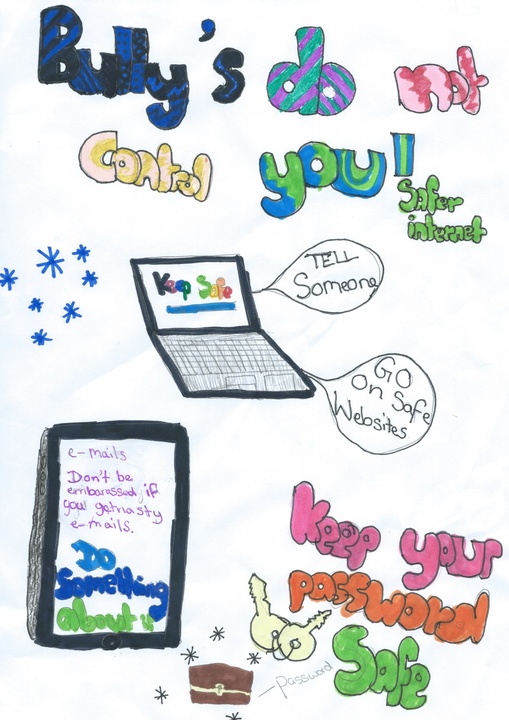 Bully's do not
Control you!
Safer
internet
Keep Safe
TELL
Someone
GO
On Safe
Websites
e-mails
Don't be
embarassed if
you get nasty
e-mails.
Do
Something
about it
Keep your
password
Safe
password